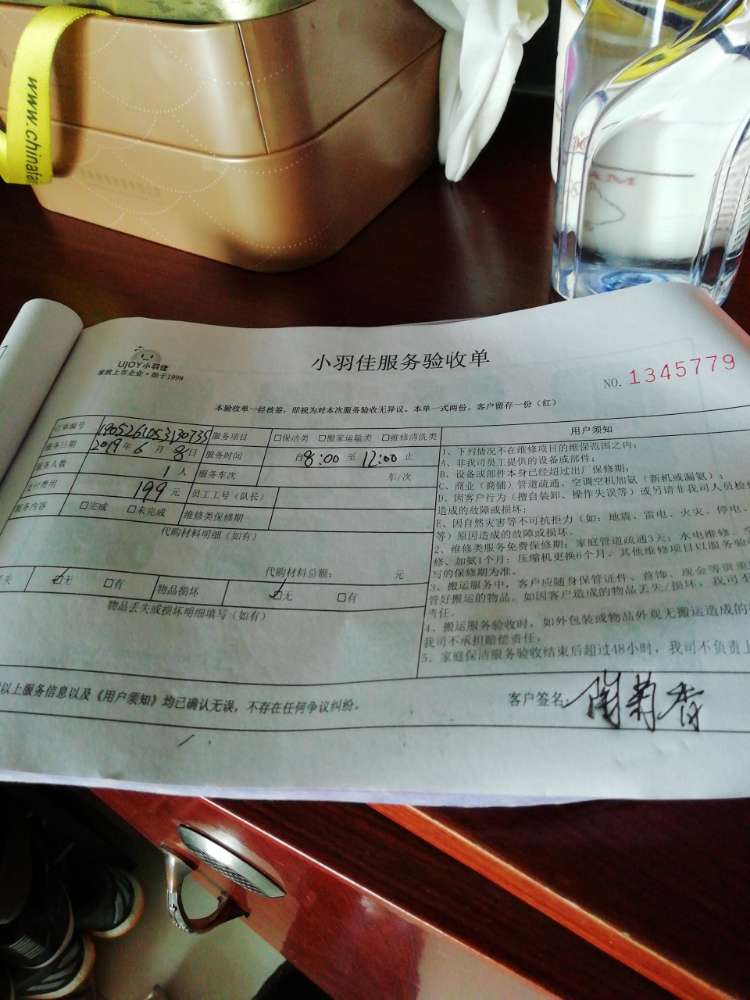 www.chinatai
UJOY小羽佳
家政上市企业·始于1999
小羽佳服务验收单
NO. 1345779
本验收单一经核签，即视为对本次服务验收无异议。本单一式两份，客户留存一份（红）
订单编号 服务项目 □保洁类 □搬家运输类 □维修清洗类
服务日期 2019年6月8日 服务时间 自8:00至12:00止
服务人数 1人 服务车次 车/次
支付费用 199元 员工工号（队长）
服务内容 □完成 □未完成 维修类保修期
代购材料明细（如有）
代购材料总额： 元
丢失 ☑无 □有 物品损坏 ☑无 □有
物品丢失或损坏明细填写（如有）
用户须知
1、下列情况不在维修项目的维保范围之内：
A、非我司员工提供的设备或部件；
B、设备或部件本身已经超过出厂保修期；
C、商业（商铺）管道疏通、空调空机加氨（新机或漏氨）；
D、因客户行为（擅自装卸、操作失误等）或另请非我司人员检修
造成的故障或损坏；
E、因自然灾害等不可抗拒力（如：地震、雷电、火灾、停电、
等）原因造成的故障或损坏。
2、维修类服务免费保修期：家庭管道疏通3天；水电维修、
修、加氨1个月；压缩机更换6个月。其他维修项目以服务验收
写的保修期为准。
3、搬运服务中，客户应随身保管证件、首饰、现金等贵重
管好搬运的物品。如因客户造成的物品丢失/损坏，我司不
责任。
4、搬运服务验收时，如外包装或物品外观无搬运造成的
我司不承担赔偿责任。
5、家庭保洁服务验收结束后超过48小时，我司不负责上
以上服务信息以及《用户须知》均已确认无误，不存在任何争议纠纷。
客户签名